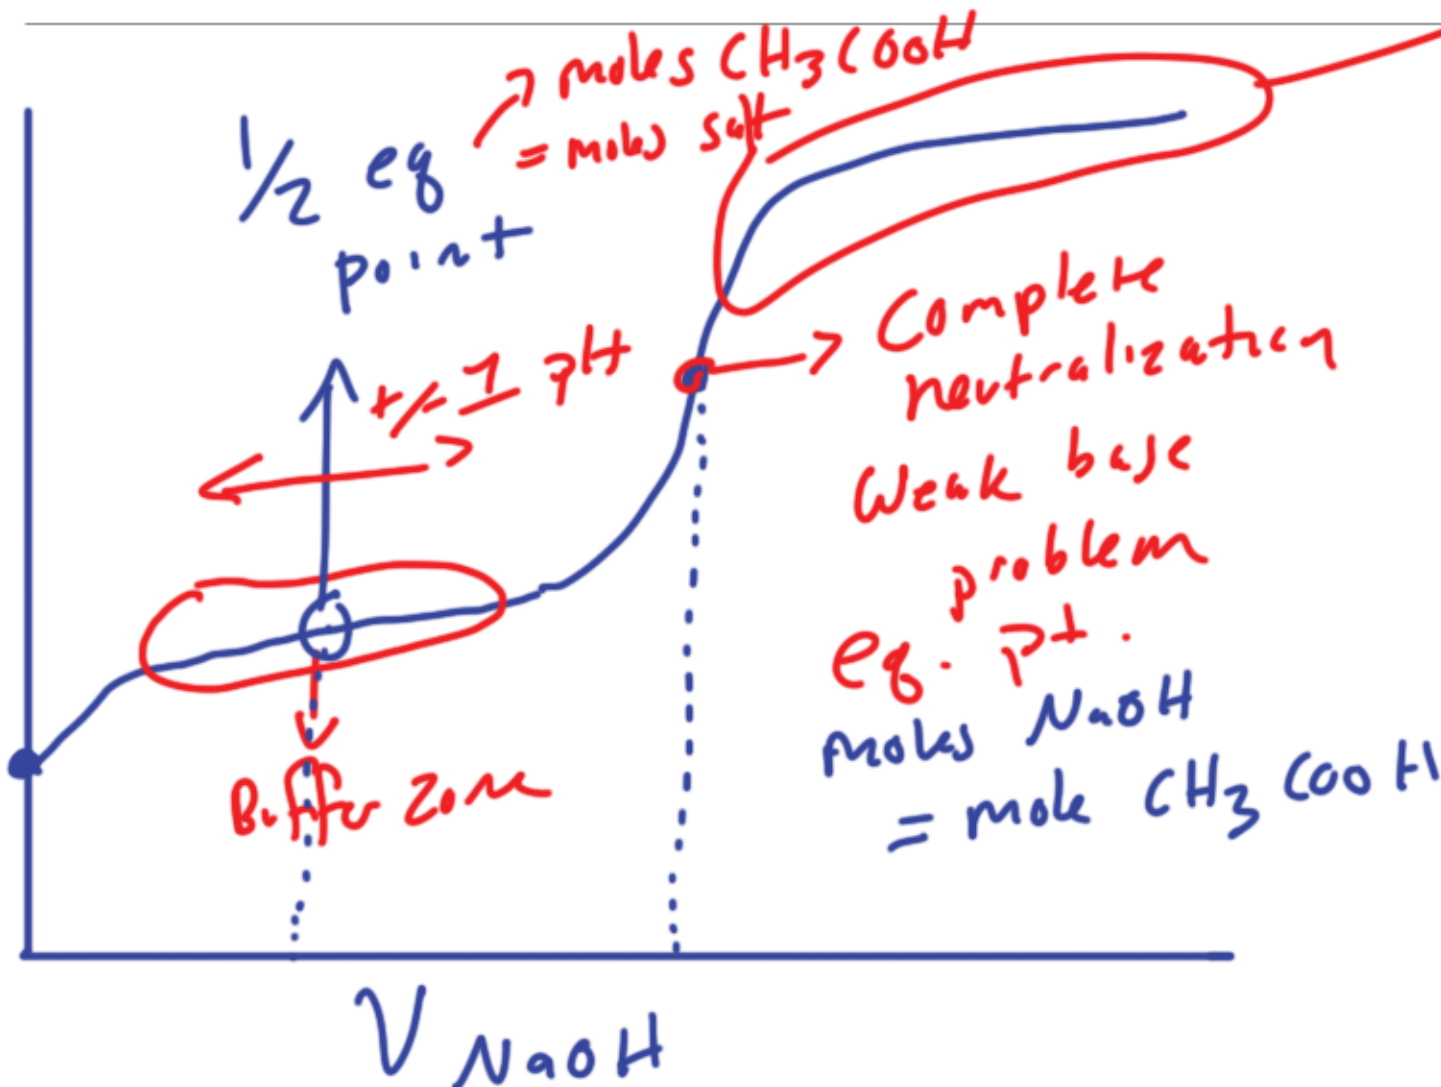 moles CH3COOH
= moles salt
1/2 eq
point
+/- 1 pH
Complete
neutralization
Weak base
problem
eq. pt.
moles NaOH
= mole CH3COOH
Buffer zone
VNaOH